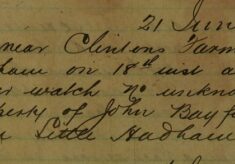 21 Jun
near Clintons Farm
ham on 18th inst a
er watch No unkno
perty of John Bay f
Little Hadham